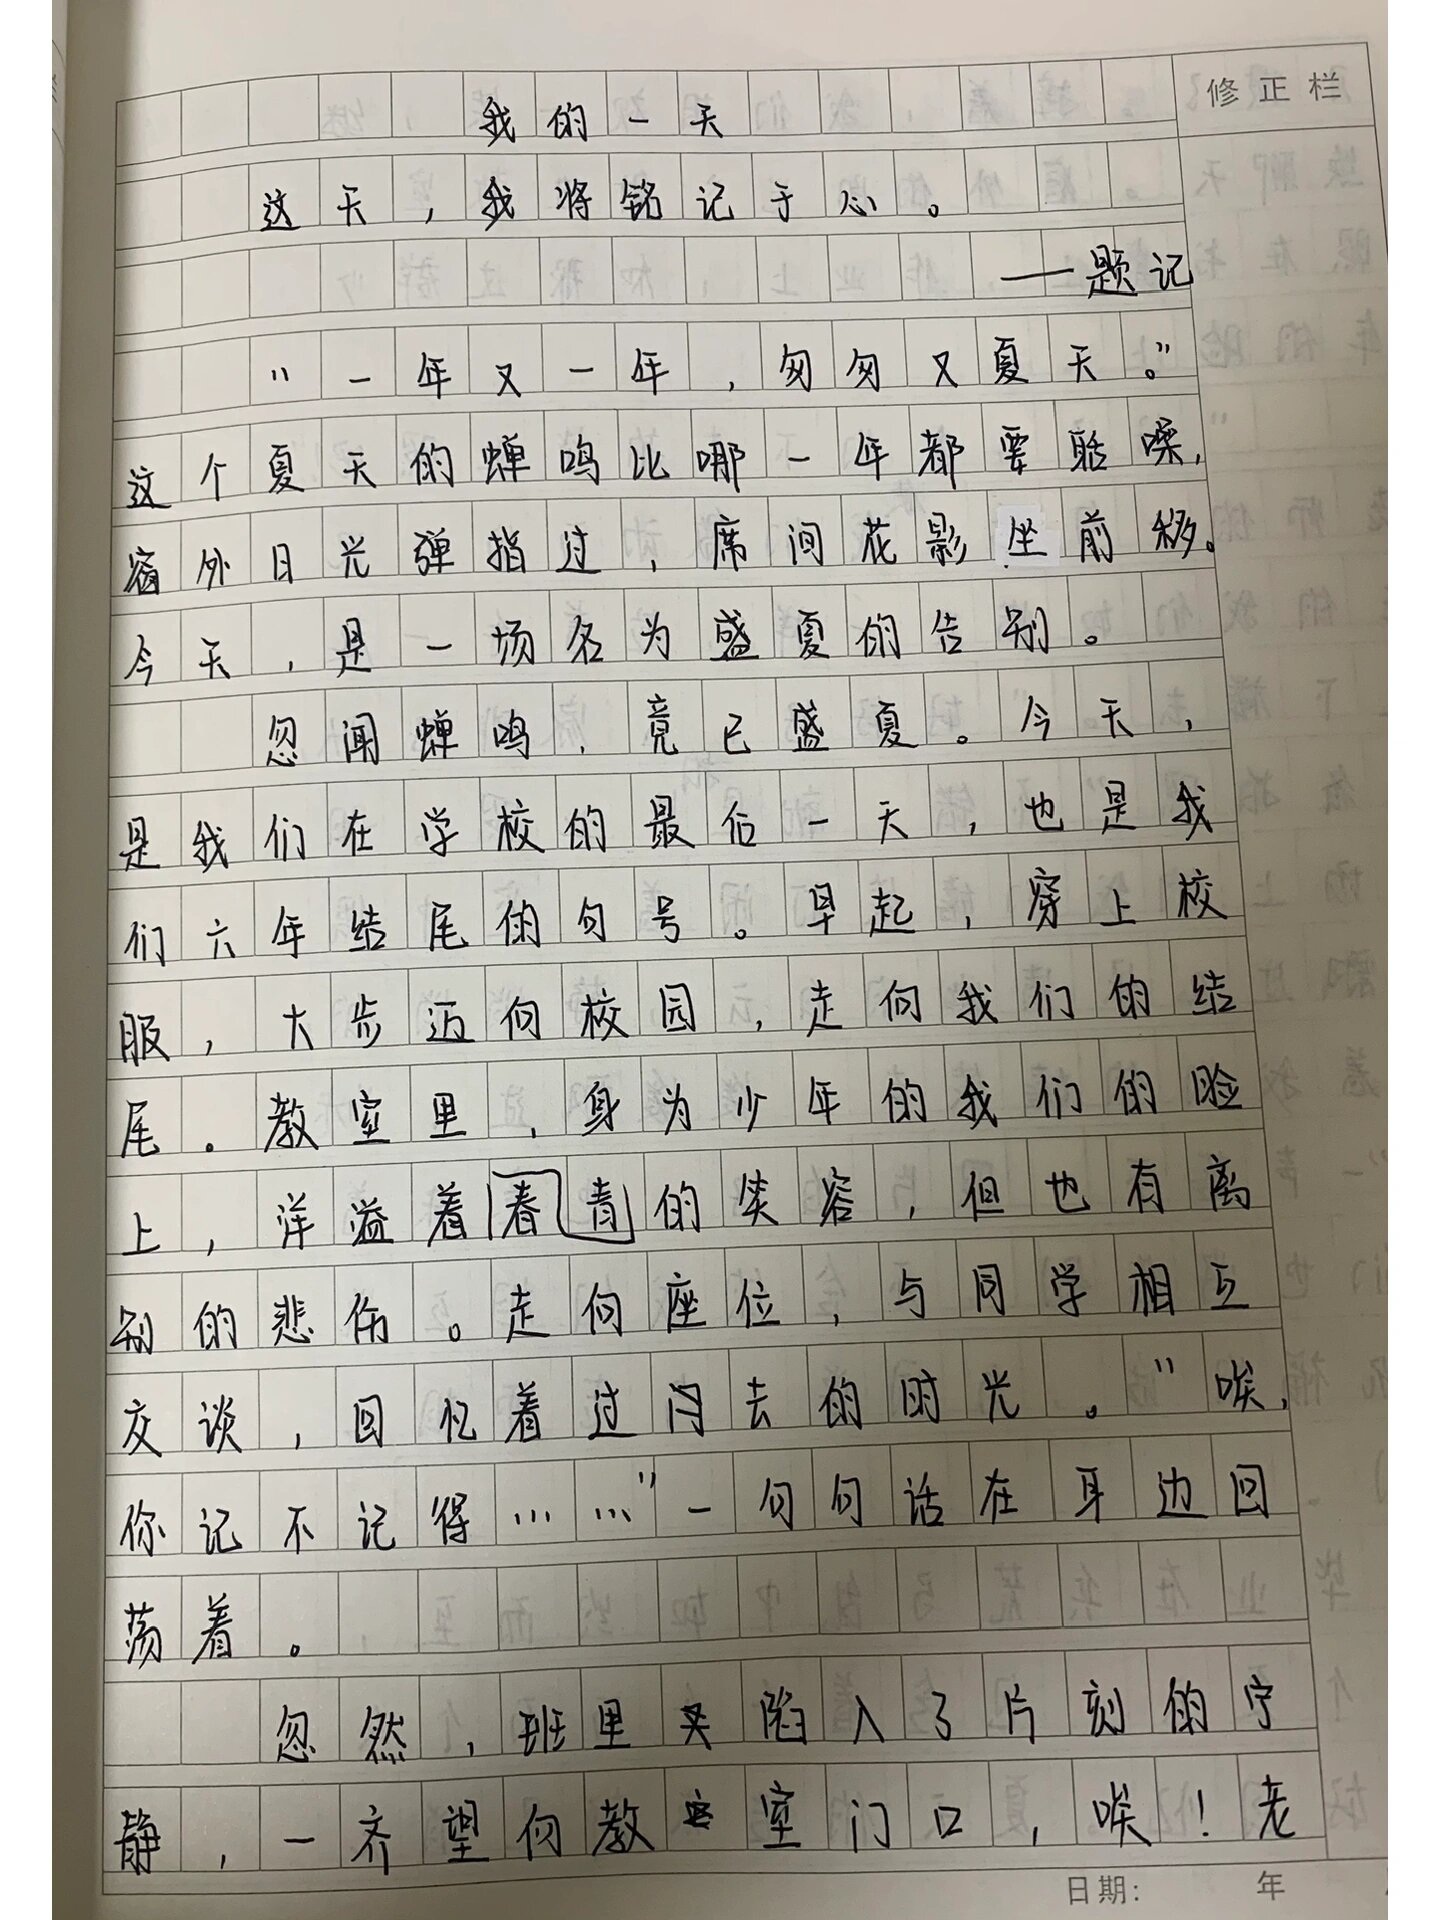 修正栏
我的一天
这天，我将铭记于心。
——题记
“一年又一年，匆匆又夏天。”
这个夏天的蝉鸣比哪一年都要聒噪，
窗外日光弹指过，席间花影坐前移。
今天，是一场名为盛夏的告别。
忽闻蝉鸣，竟已盛夏。今天，
是我们在学校的最后一天，也是我
们六年结尾的句号。早起，穿上校
服，大步迈向校园，走向我们的结
尾。教室里，身为少年的我们的脸
上，洋溢着春青的笑容，但也有离
别的悲伤。走向座位，与同学相互
交谈，回忆着过去的时光。“唉，
你记不记得……”一句句话在耳边回
荡着。
忽然，班里陷入了片刻的宁
静，一齐望向教室门口，唉！老
日期： 年